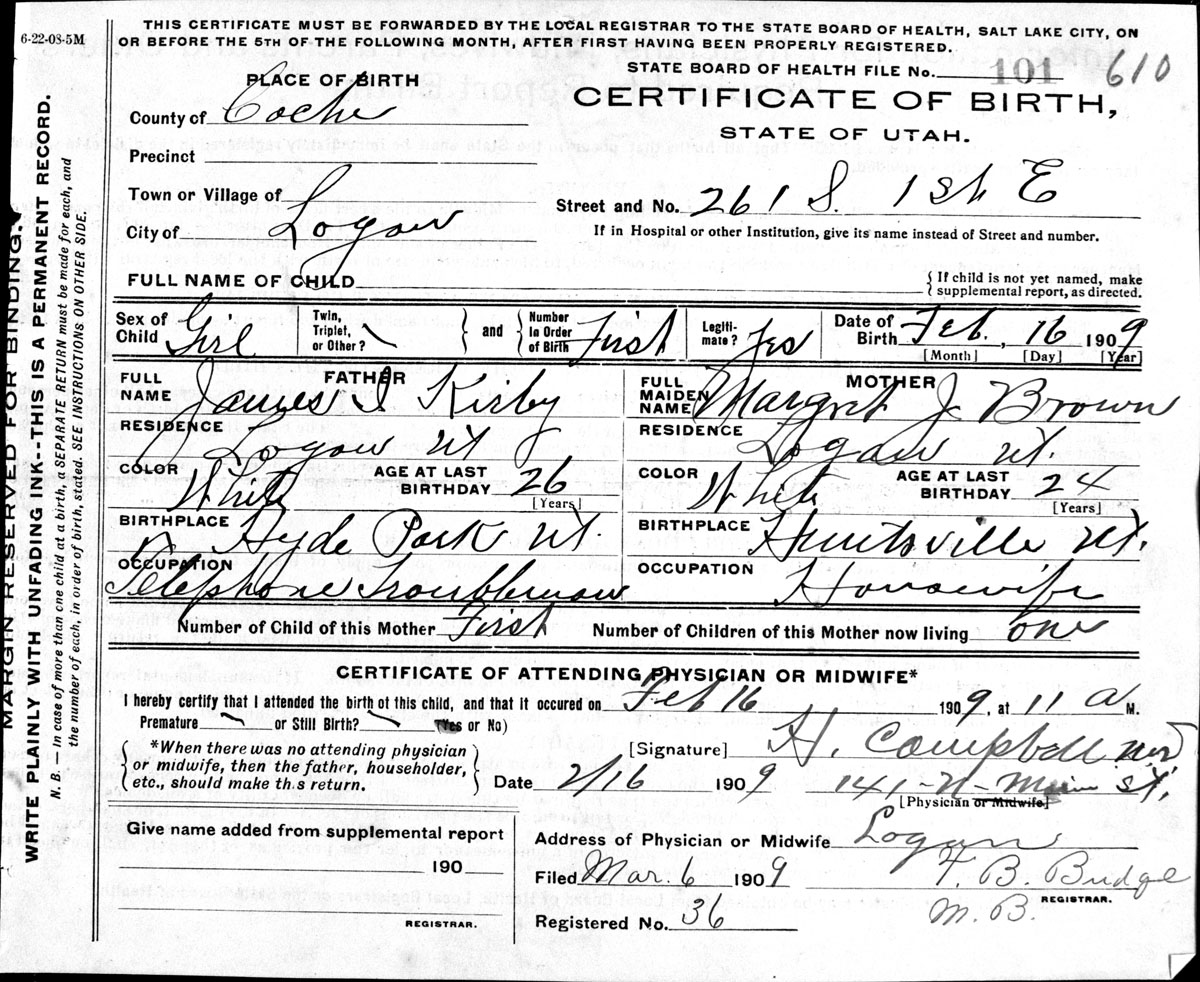 THIS CERTIFICATE MUST BE FORWARDED BY THE LOCAL REGISTRAR TO THE STATE BOARD OF HEALTH, SALT LAKE CITY, ON
OR BEFORE THE 5TH OF THE FOLLOWING MONTH, AFTER FIRST HAVING BEEN PROPERLY REGISTERED.
6-22-08-5M
STATE BOARD OF HEALTH FILE No. 101 610
PLACE OF BIRTH
CERTIFICATE OF BIRTH,
STATE OF UTAH.
County of Cache
Precinct
Town or Village of
Street and No. 261 S. 1st E
City of Logan
If in Hospital or other Institution, give its name instead of Street and number.
FULL NAME OF CHILD
{ If child is not yet named, make
supplemental report, as directed.
Sex of Child Girl
Twin, Triplet, or Other? \ } and { Number in Order of Birth First
Legiti-mate? Yes
Date of Birth Feb. , 16 1909
[Month] [Day] [Year]
FATHER
FULL NAME James I Kirby
RESIDENCE Logan Ut
COLOR White AGE AT LAST BIRTHDAY 26
[Years]
BIRTHPLACE Hyde Park Ut.
OCCUPATION Telephone Troubleman
MOTHER
FULL MAIDEN NAME Margret J. Brown
RESIDENCE Logan Ut.
COLOR White AGE AT LAST BIRTHDAY 24
[Years]
BIRTHPLACE Huntsville Ut.
OCCUPATION Housewife
Number of Child of this Mother First Number of Children of this Mother now living one
CERTIFICATE OF ATTENDING PHYSICIAN OR MIDWIFE*
I hereby certify that I attended the birth of this child, and that it occured on Feb 16 1909, at 11 a M.
Premature \ or Still Birth? \ (Yes or No)
{ *When there was no attending physician
or midwife, then the father, householder,
etc., should make th.s return. }
[Signature] H. Campbell MD
Date 2/16 1909 141-N-Main St.
[Physician or Midwife]
Give name added from supplemental report
190
REGISTRAR.
Address of Physician or Midwife Logan
Filed Mar. 6 1909 T. B. Budge
REGISTRAR.
M. B.
Registered No. 36
MARGIN RESERVED FOR BINDING.
WRITE PLAINLY WITH UNFADING INK--THIS IS A PERMANENT RECORD.
N. B. — In case of more than one child at a birth, SEPARATE RETURN must be made for each, and
the number of each, in order of birth, stated. SEE INSTRUCTIONS ON OTHER SIDE.